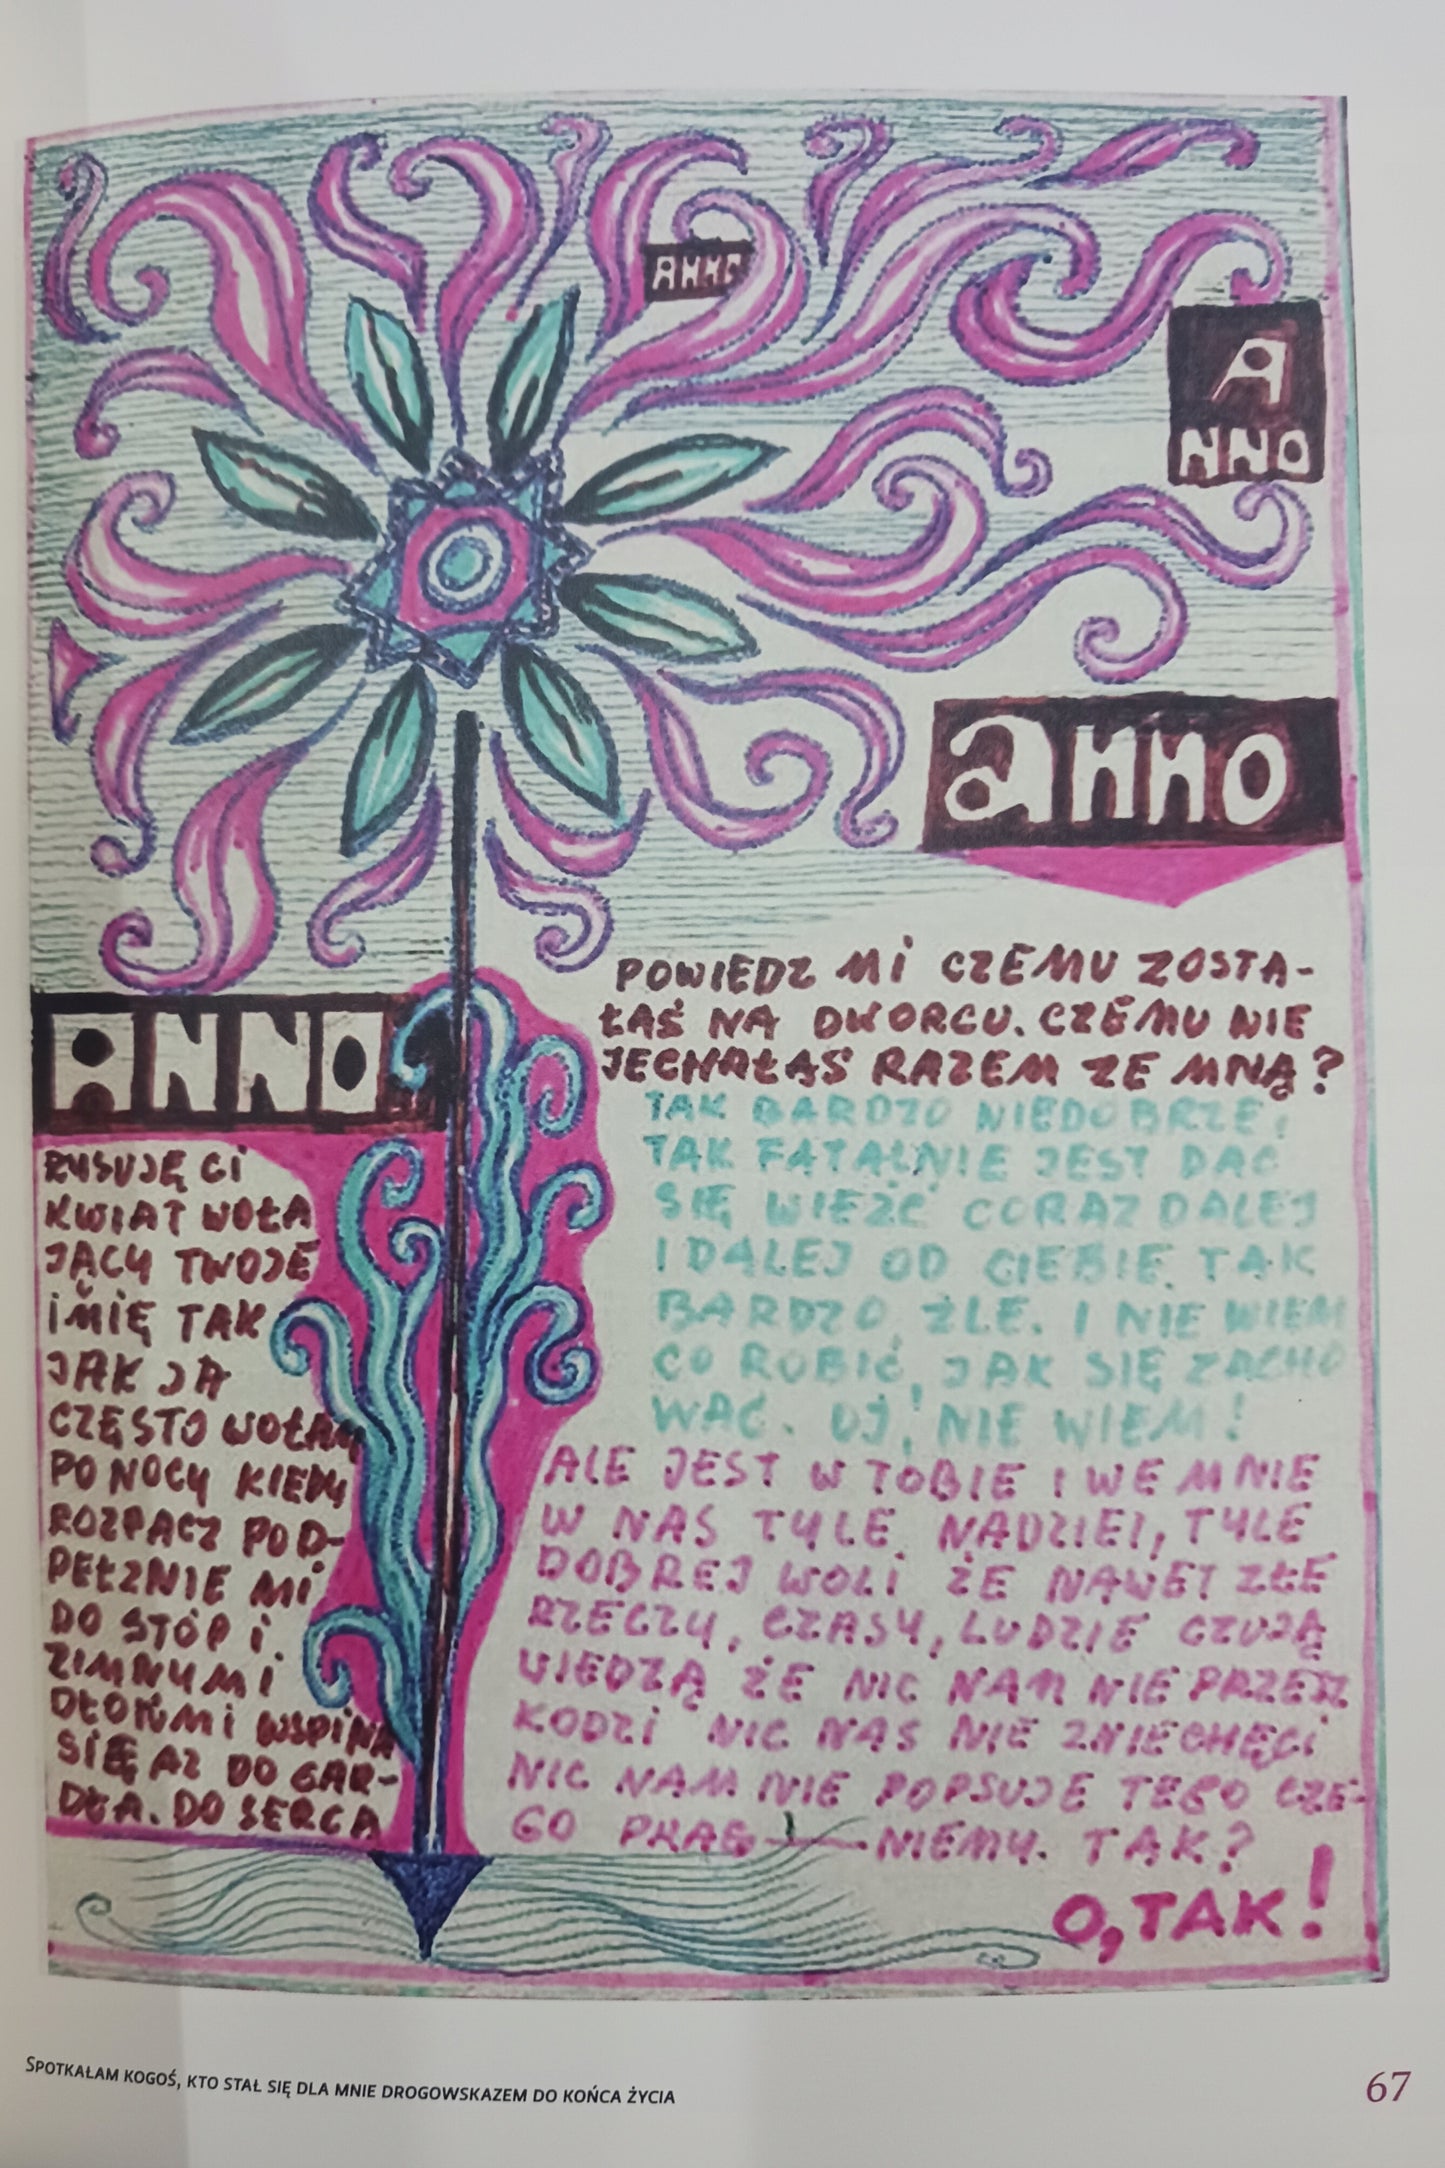 ANNO
A
NNO
anno
ANNO
RYSUJĘ CI
KWIAT WOŁA
JĄCY TWOJE
IMIĘ TAK
JAK JA
CZĘSTO WOŁAM
PO NOCY KIEDY
ROZPACZ POD-
PEŁZNIE MI
DO STÓP I
ZIMNYMI
DŁOŃMI WSPINA
SIĘ AZ DO GAR-
DŁA. DO SERCA
POWIEDZ MI CZEMU ZOSTA-
ŁAŚ NA DWORCU. CZEMU NIE
JECHAŁAŚ RAZEM ZE MNĄ?
TAK BARDZO NIEDOBRZE,
TAK FATALNIE JEST DAĆ
SIĘ WIEŹĆ CORAZ DALEJ
I DALEJ OD CIEBIE. TAK
BARDZO ŹLE. I NIE WIEM
CO ROBIĆ, JAK SIĘ ZACHO
WAĆ. OJ, NIE WIEM!
ALE JEST W TOBIE I WE MNIE
W NAS TYLE NADZIEI, TYLE
DOBREJ WOLI ŻE NAWET ZŁE
RZECZY, CZASY, LUDZIE CZUJĄ
WIEDZĄ ŻE NIC NAM NIE PRZESZ
KODZI NIC NAS NIE ZNIECHĘCI
NIC NAM NIE POPSUJE TEGO CZE-
GO PRAG — NIEMY. TAK?
O, TAK!
SPOTKAŁAM KOGOŚ, KTO STAŁ SIĘ DLA MNIE DROGOWSKAZEM DO KOŃCA ŻYCIA
67